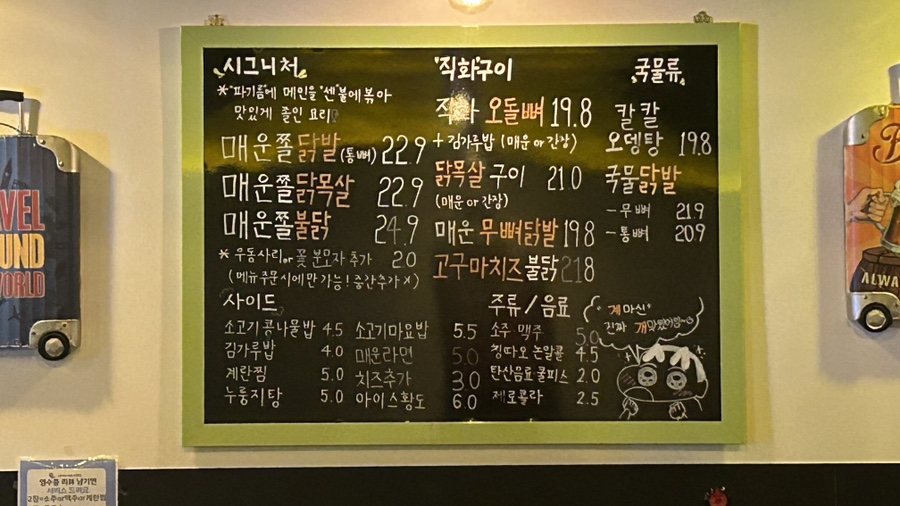 시그니처
*"파기름"에 메인을 "센"불에 볶아
맛있게 졸인 요리
매운쫄닭발(통뼈) 22.9
매운쫄닭목살 22.9
매운쫄불닭 24.9
* 우동사리or꽃 분모자 추가 2.0
(메뉴주문시에만 가능! 중간추가 X)
사이드
소고기 콩나물밥 4.5
김가루밥 4.0
계란찜 5.0
누룽지탕 5.0
소고기마요밥 5.5
매운라면 5.0
치즈추가 3.0
아이스황도 6.0
직화구이
직화 오돌뼈 19.8
+ 김가루밥 (매운 or 간장)
닭목살 구이 21.0
(매운 or 간장)
매운 무뼈닭발 19.8
고구마치즈불닭 21.8
주류/음료
소주 맥주 5.0
칭따오 논알콜 4.5
탄산음료·쿨피스 2.0
제로콜라 2.5
국물류
칼칼
오뎅탕 19.8
국물닭발
-무뼈 21.9
-통뼈 20.9
"계마신"
진짜 개맛있어염~
VEL
UND
WORLD
ALWA
영수증 리뷰 남기면
서비스 드려요